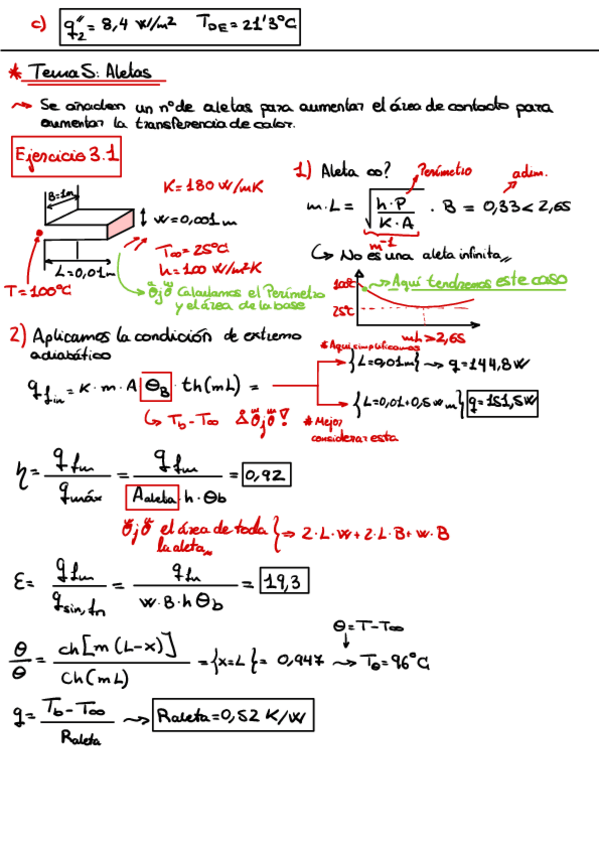 c) q₂'' = 8,4 W/m² T_DE = 21'3ºC
* Tema 5: Aletas
→ Se añaden un nº de aletas para aumentar el área de contacto para
aumentar la transferencia de calor.
Ejercicio 3.1
B=1m
K=180 W/mK
W=0,001m
T∞=25ºC
h=100 W/m²K
L=0,01m
T=100ºC
→ ÖjÖ Calculamos el Perímetro
y el área de la base
1) Aleta ∞? Perímetro adim.
m·L = √(h·P / K·A) · B = 0,33 < 2,65
m⁻¹
↳ No es una aleta infinita,,
100ºC → Aquí tendremos este caso
25ºC
mL>2,65
2) Aplicamos la condición de extremo
adiabático
q_fin = K·m·A θ_B · th(mL) =
*Aquí simplificamos
{L=0,01m} → q=144,8W
{L=0,01+0,5 w m} q=151,5W
↳ T_b-T∞ ÖjÖ!
*Mejor
considerar esta
η = q_fin / q_máx = q_fin / (A_aleta·h·θ_b) = 0,92
ÖjÖ el área de toda
la aleta,, } ⇒ 2·L·W+2·L·B+W·B
ε = q_fin / q_sin,fin = q_fin / (W·B·h θ_b) = 19,3
θ=T-T∞
θ/θ = ch[m(L-x)] / Ch(mL) = {x=L} = 0,947 → T_θ=96ºC
q = (T_b-T∞) / R_aleta → R_aleta=0,52 K/W